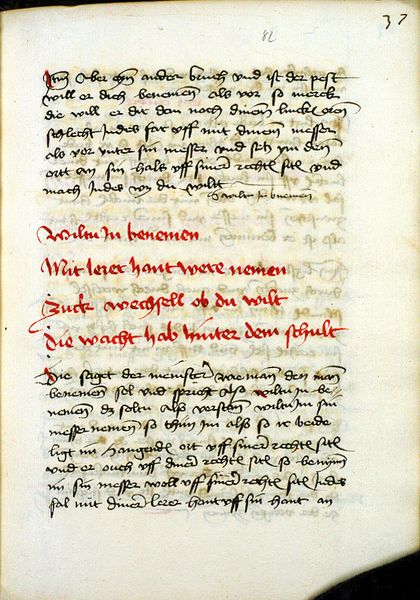 37
82
Item Aber eyn ander bruch vnd ist der pest
will er dich benemen als vor so merck
die will er dit dem noch dinem lincken oren
schlecht Indes far vff mit dinem messer
als vor vnter sin messer vnd setz ym den
ort an sin hals vff siner rechten siten vnd
mach Indes was du wilt
Swiltu In benemen
Wiltu In benemen
Mit lerer hant were nemen
Zuck wechsell ob du wilt
die wacht hab hinter dem schilt
Hie saget der meinster wie man den man
benemen sol vnd spricht Also wiltu in be-
nemen das soltu Alß verstan wiltu Im sin
messer nemen so thun im alß so ir beide
ligt im hangende ort vff siner rechte siten
vnd er ouch vff diner rechte siten so benym
im sin messer woll vff siner rechte siten Indes
sal mit diner lerer hant vff sin hant an